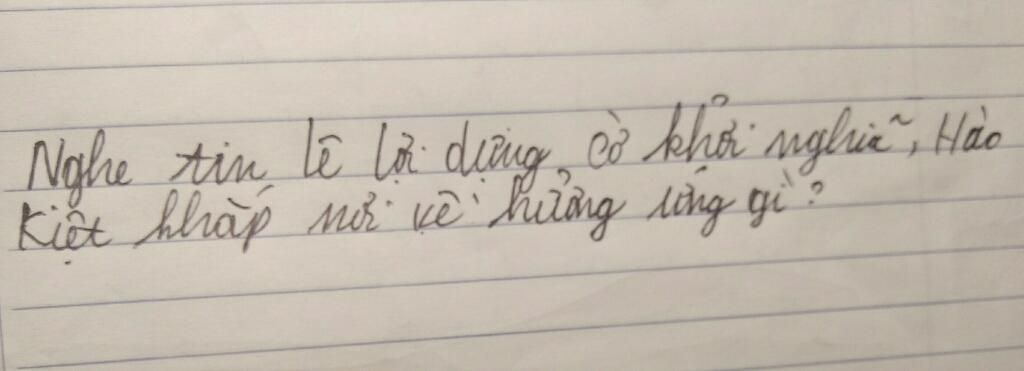 Nghe tin Lê Lợi dựng cờ khởi nghiã, Hào
Kiệt khắp nơi về hưởng ứng gì?